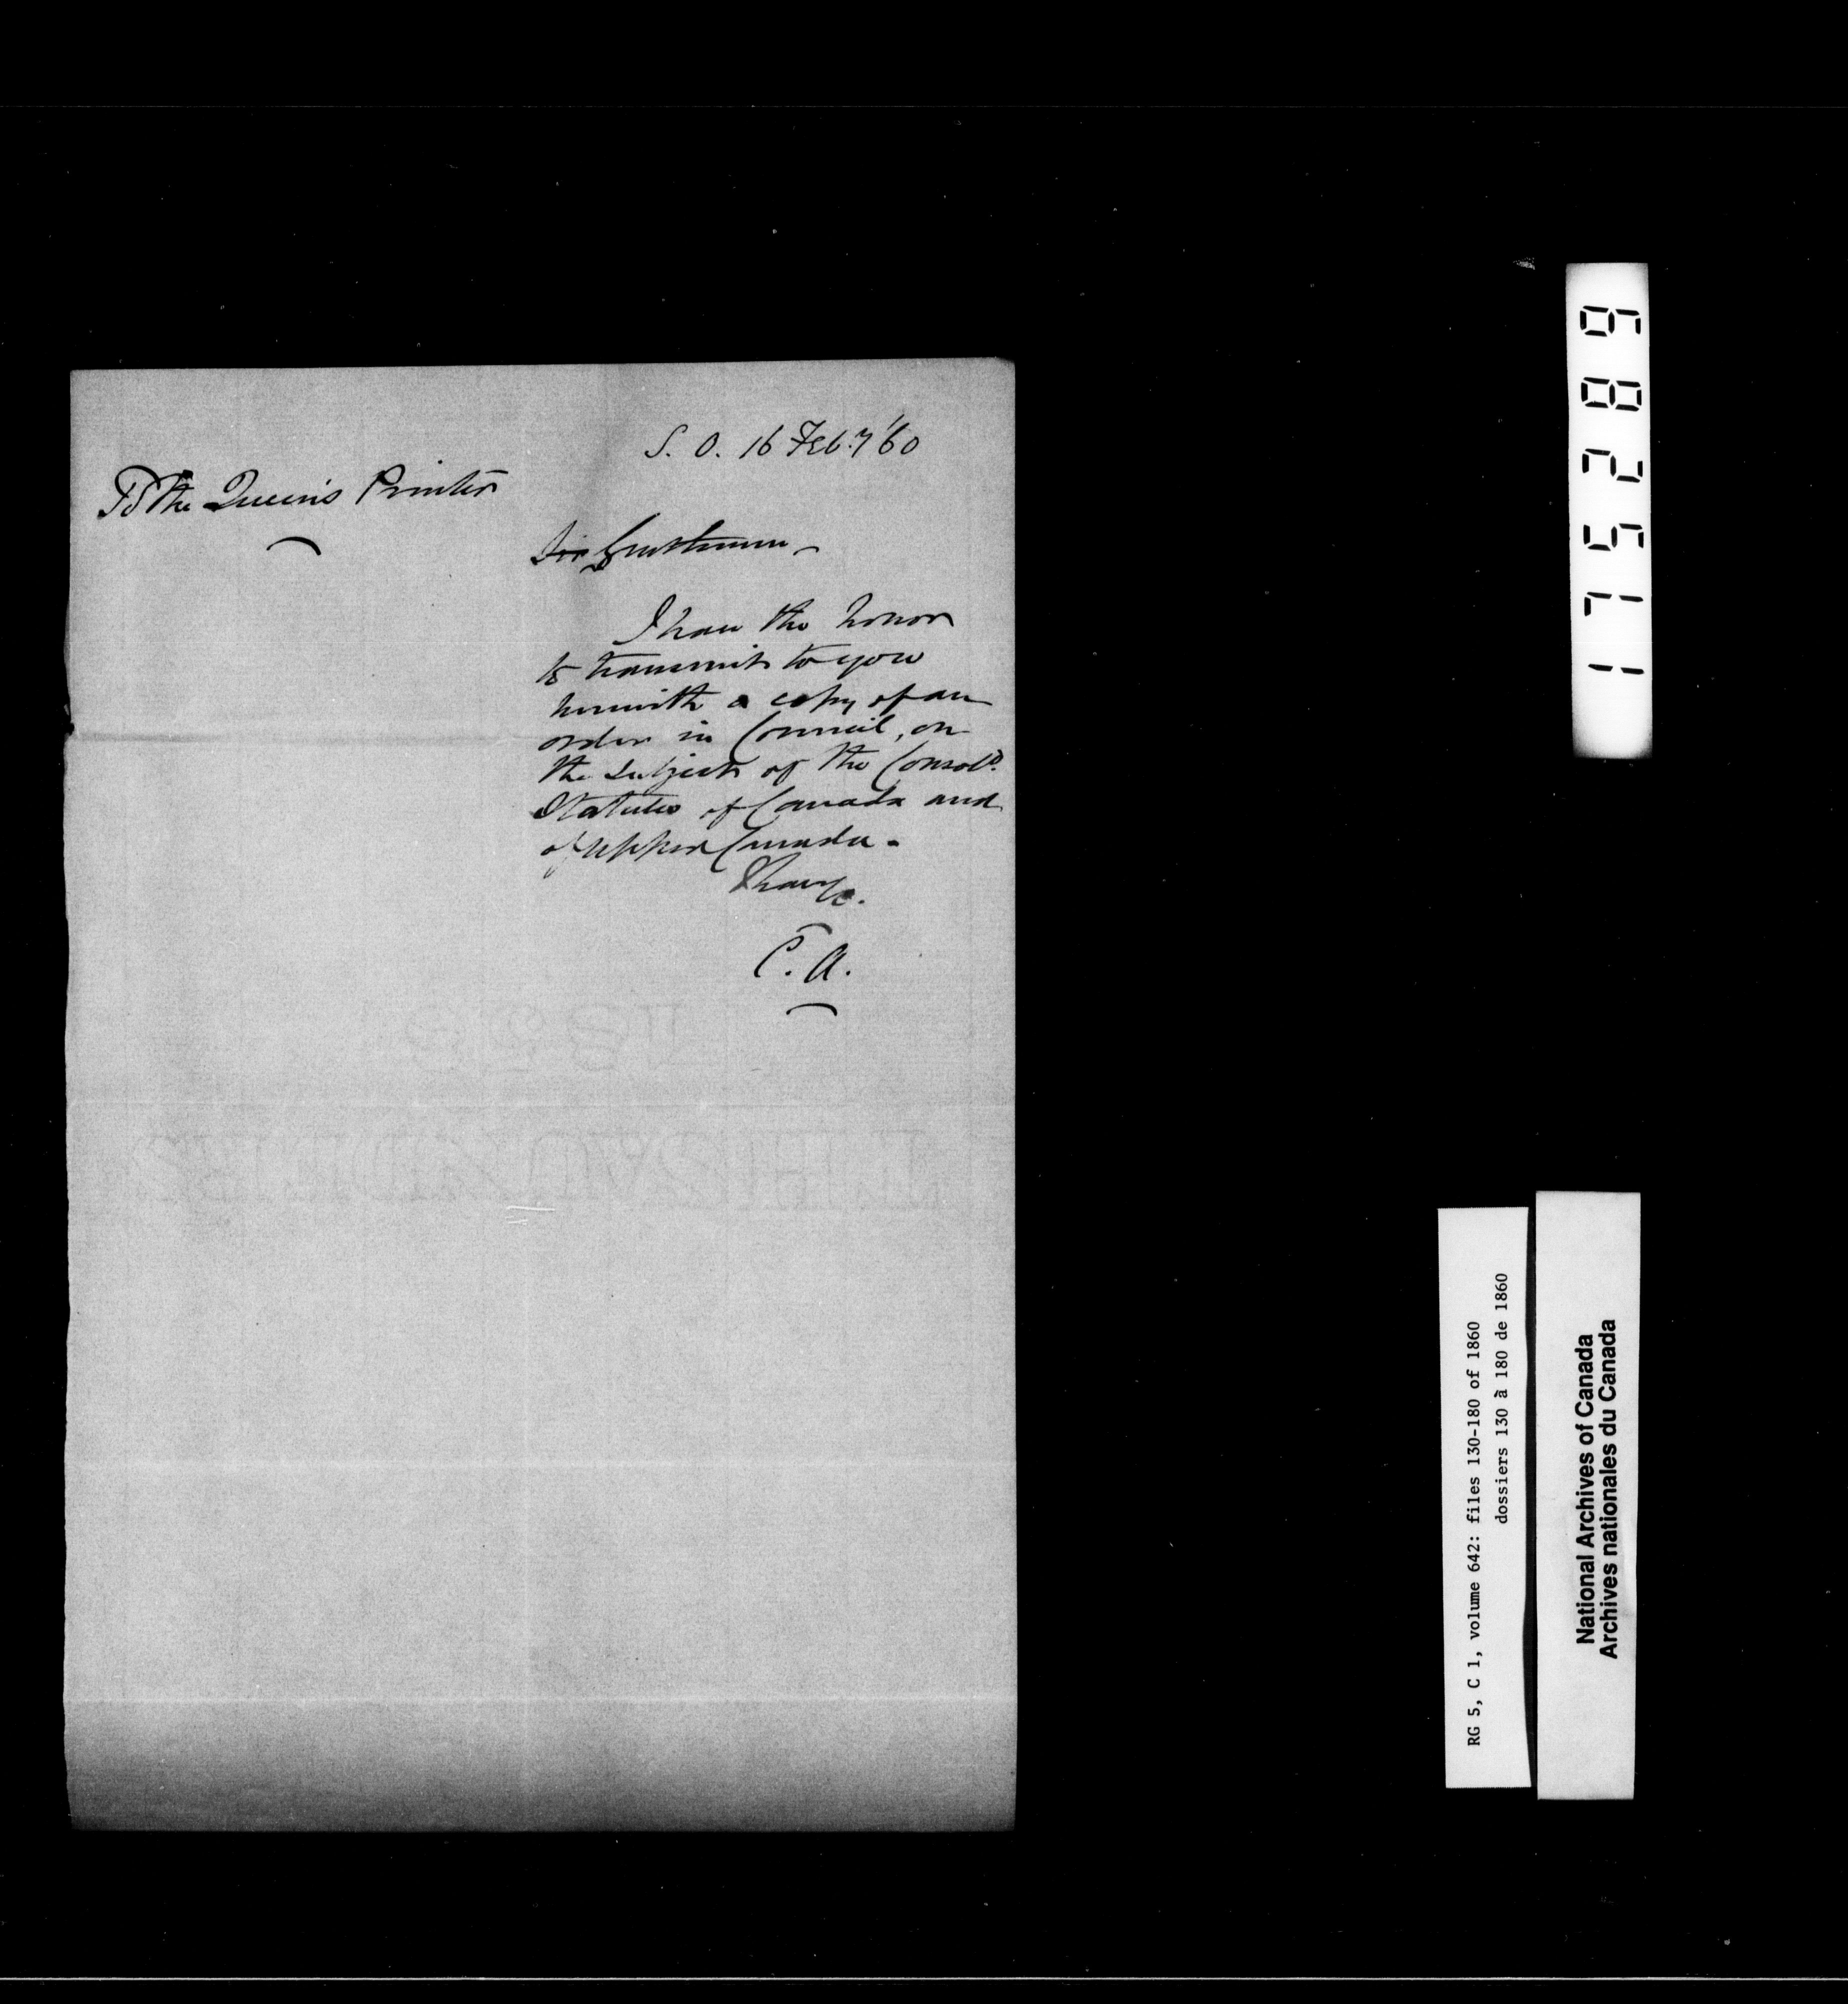 S. O. 16 Feb.y '60
To the Queen's Printer
Sir Gentlemen -
I have the honor
to transmit to you
herewith a copy of an
order in Council, on
the subject of the Consold.
Statutes of Canada and
of Upper Canada -
I have &c.
C. A.
175289
RG 5, C 1, volume 642: files 130-180 of 1860
dossiers 130 à 180 de 1860
National Archives of Canada
Archives nationales du Canada